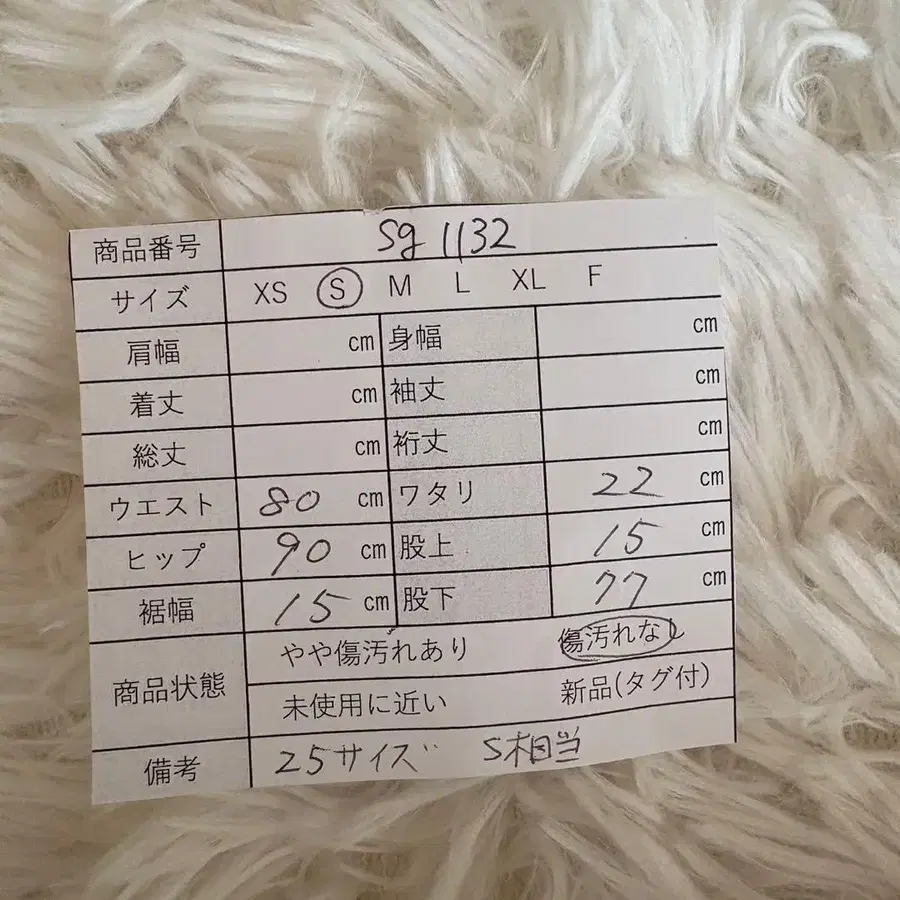 商品番号 Sg 1132
サイズ XS S M L XL F
肩幅 cm 身幅 cm
着丈 cm 袖丈 cm
総丈 cm 裄丈 cm
ウエスト 80 cm ワタリ 22 cm
ヒップ 90 cm 股上 15 cm
裾幅 15 cm 股下 77 cm
商品状態 やや傷汚れあり 傷汚れなし
未使用に近い 新品(タグ付)
備考 25サイズ S相当